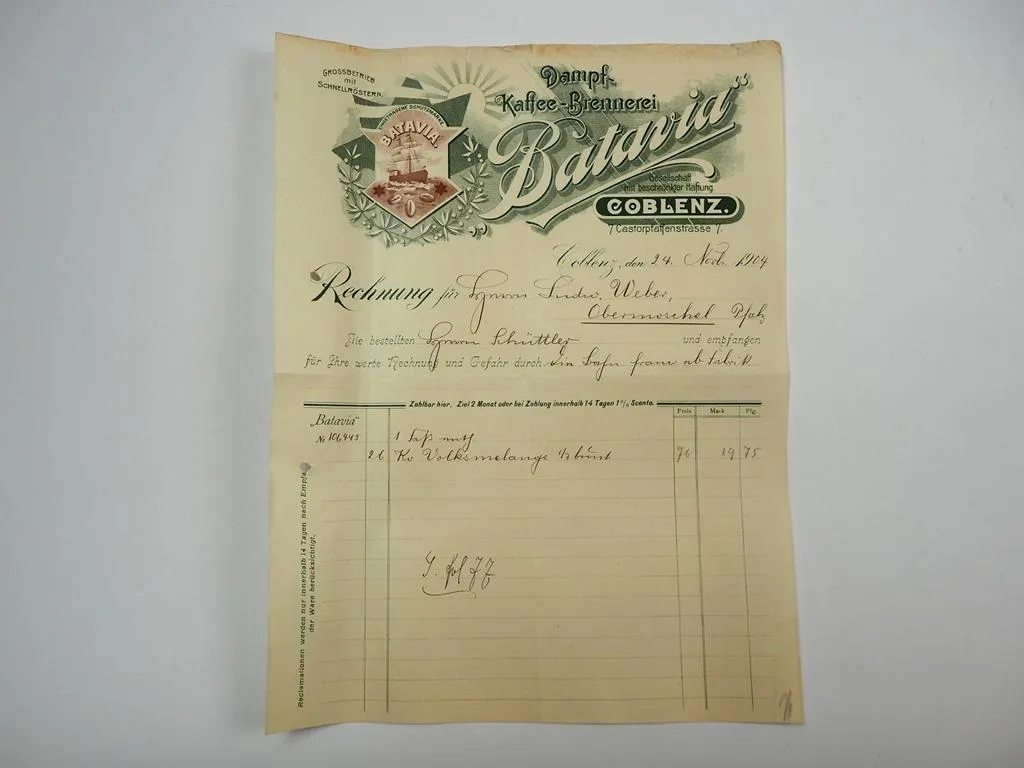 GROSSBETRIEB
mit
SCHNELLRÖSTERN.
EINGETRAGENE SCHUTZMARKE.
BATAVIA.
Dampf-
Kaffee-Brennerei
„Batavia“
Gesellschaft
mit beschränkter Haftung.
COBLENZ.
7 Castorpfaffenstrasse 7.
Coblenz, den 24. Novbr. 1904
Rechnung für Herrn Ludw. Weber,
Obermoschel Pfalz
Sie bestellten Herrn Schüttler und empfangen
für Ihre werte Rechnung und Gefahr durch die Bahn franco ab Fabrik
Zahlbar hier. Ziel 2 Monat oder bei Zahlung innerhalb 14 Tagen 1% Sconto.
Preis Mark Pfg.
„Batavia“
№ 106445 1
26 Ko Volksmelange 76 19 75
Reclamationen werden nur innerhalb 14 Tagen nach Empfang
der Ware berücksichtigt.